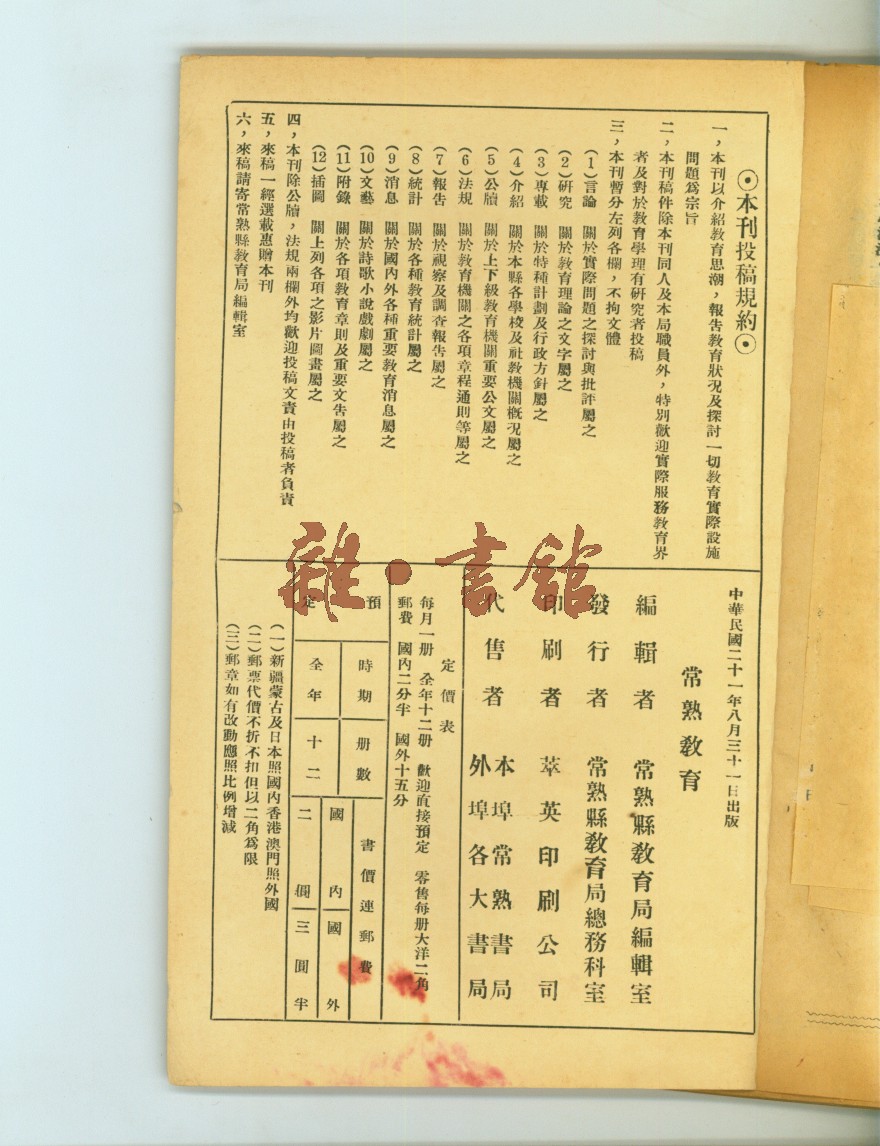 ⊙本刊投稿規約⊙
一，本刊以介紹教育思潮，報告教育狀况及探討一切教育實際設施
問題爲宗旨
二，本刊稿件除本刊同人及本局職員外，特別歡迎實際服務教育界
者及對於教育學理有研究者投稿
三，本刊暫分左列各欄，不拘文體
（1）言論　關於實際問題之探討與批評屬之
（2）研究　關於教育理論之文字屬之
（3）專載　關於特種計劃及行政方針屬之
（4）介紹　關於本縣各學校及社教機關概况屬之
（5）公牘　關於上下級教育機關重要公文屬之
（6）法規　關於教育機關之各項章程通則等屬之
（7）報告　關於視察及調查報告屬之
（8）統計　關於各種教育統計屬之
（9）消息　關於國內外各種重要教育消息屬之
（10）文藝　關於詩歌小說戲劇屬之
（11）附錄　關於各項教育章則及重要文告屬之
（12）插圖　關上列各項之影片圖畫屬之
四，本刊除公牘，法規兩欄外均歡迎投稿文責由投稿者負責
五，來稿一經選載惠贈本刊
六，來稿請寄常熟縣教育局編輯室
中華民國二十一年八月三十一日出版
常熟教育
編輯者　常熟縣教育局編輯室
發行者　常熟縣教育局總務科室
印刷者　萃英印刷公司
代售者　本埠常熟書局
外埠各大書局
定價表
每月一册　全年十二册　歡迎直接預定　零售每册大洋二角
郵費　國內二分半　國外十五分
預定
時期　册數　書價連郵費
國內　國外
全年　十二　二圓　三圓半
（一）新疆蒙古及日本照國內香港澳門照外國
（二）郵票代價不折不扣但以二角爲限
（三）郵章如有改動應照比例增減
雜·書館